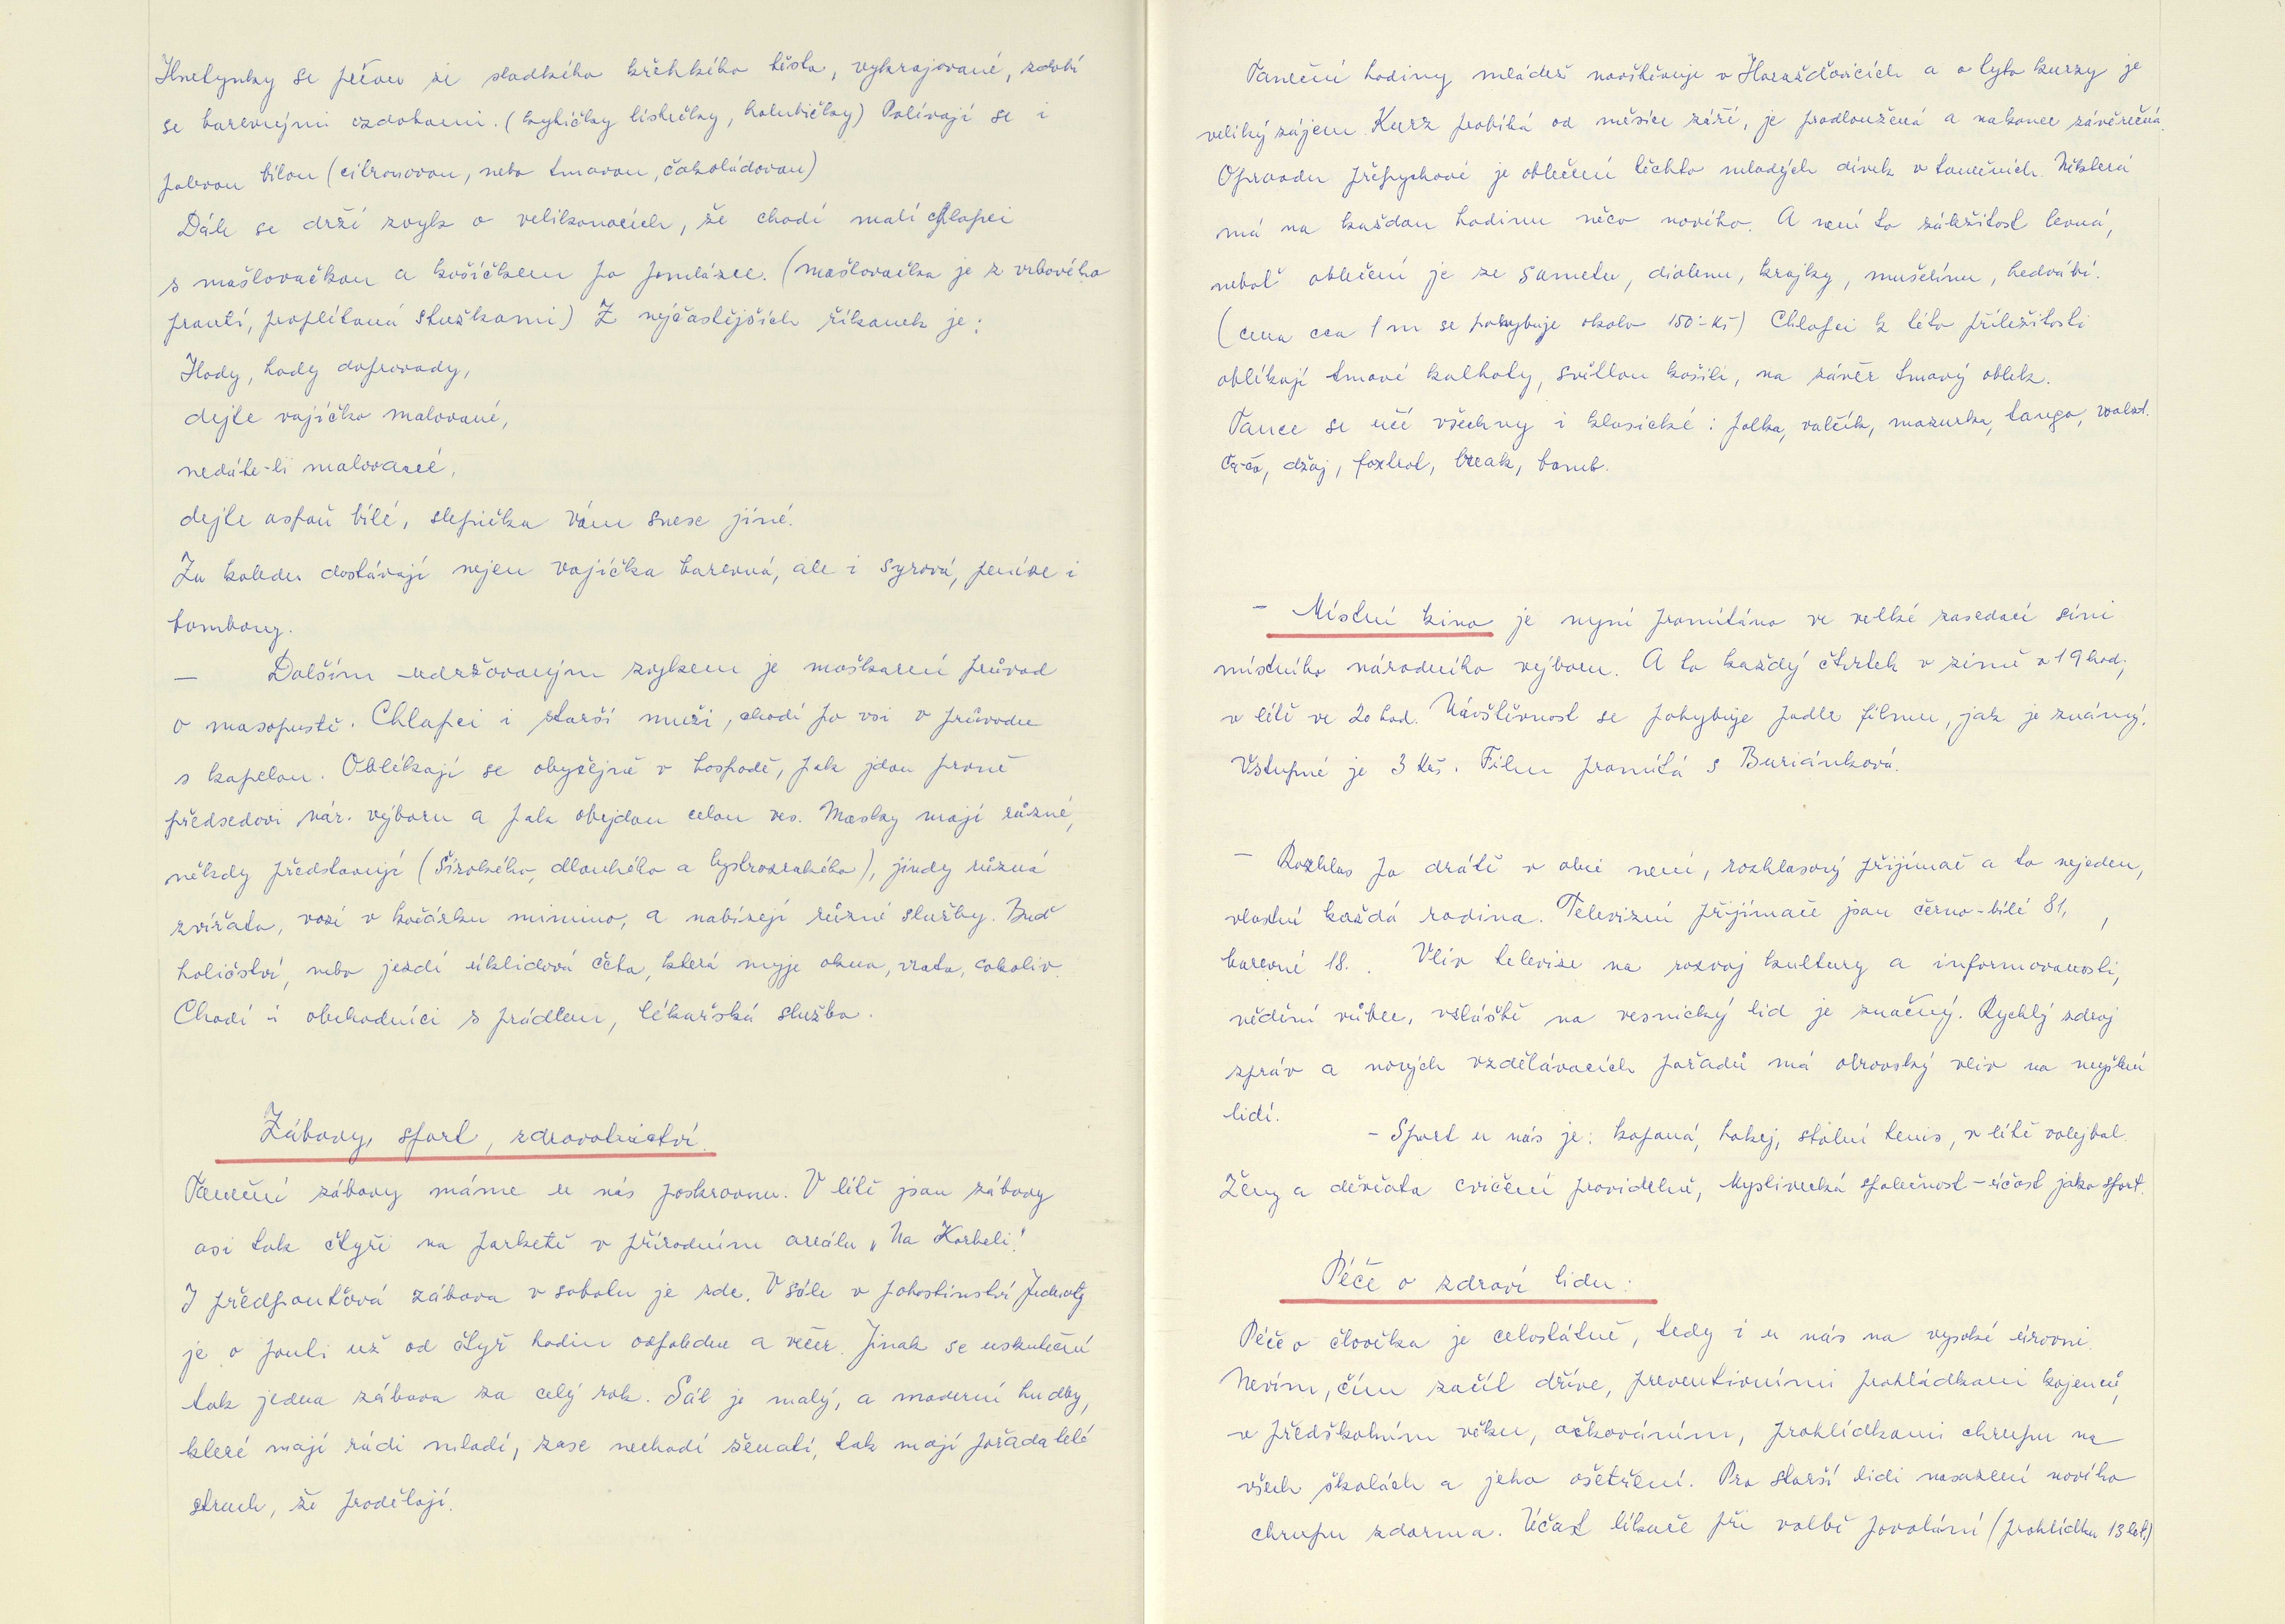 Hnetynky se pečou ze sladkého křehkého těsta, vykrajované, zdobí
se barevnými ozdobami. (kytičky lístečky, holubičky) Polívají se i
polevou bílou (citronovou, nebo tmavou, čokoládovou)
Dále se drží zvyk o velikonocích, že chodí malí chlapci
s mašlovačkou a košíčkem po pomlázce. (mašlovačka je z vrbového
proutí, proplítaná stužkami) Z nejčastějších říkanek je:
Hody, hody doprovody,
dejte vajíčko malované,
nedáte-li malované,
dejte aspoň bílé, slepička Vám snese jiné.
Za koledu dostávají nejen vajíčka barevná, ale i syrová, peníze i
bombony.
— Dalším udržovaným zvykem je maškarní průvod
o masopustě. Chlapci i starší muži, chodí po vsi v průvodu
s kapelou. Oblékají se obyčejně v hospodě, pak jdou prvně
předsedovi nár. výboru a pak obejdou celou ves. Masky mají různé,
někdy představují (Širokého, dlouhého a bystrozrakého), jindy různá
zvířata, vozí v kočárku mimino, a nabízejí různé služby. Buď
holičství, nebo jezdí úklidová četa, která myje okna, vrata, cokoliv.
Chodí i obchodníci s prádlem, lékařská služba.
Zábavy, sport, zdravotnictví.
Taneční zábavy máme u nás poskrovnu. V létě jsou zábavy
asi tak čtyři na parketě v přírodním areálu „Na Korbeli."
I předpouťová zábava v sobotu je zde. V sále v pohostinství Jednoty
je o pouti už od čtyř hodin odpoledne a večer. Jinak se uskuteční
tak jedna zábava za celý rok. Sál je malý, a moderní hudby,
které mají rádi mladí, zase nechodí ženatí, tak mají pořadatelé
strach, že prodělají.
Taneční hodiny mládež navštěvuje v Horažďovicích a o tyto kurzy je
veliký zájem. Kurz probíhá od měsíce září, je prodloužená a nakonec závěrečná.
Opravdu přepychové je oblečení těchto mladých dívek v tanečních. Některá
má na každou hodinu něco nového. A není to záležitost levná,
neboť oblečení je ze sametu, diolenu, krajky, mušelínu, hedvábí.
(cena cca 1 m se pohybuje okolo 150.- Kč) Chlapci k této příležitosti
oblékají tmavé kalhoty, světlou košili, na závěr tmavý oblek.
Tance se učí všechny i klasické: polka, valčík, mazurka, tango, waltz.
Ča-ča, džaj, foxtrot, break, bomb.
- Místní kino je nyní promítáno ve velké zasedací síni
místního národního výboru. A to každý čtvrtek v zimě v 19 hod,
v létě ve 20 hod. Návštěvnost se pohybuje podle filmu, jak je známý.
Vstupné je 3 Kčs. Film promítá s Buriánková.
- Rozhlas po drátě v obci není, rozhlasový přijímač a to nejeden,
vlastní každá rodina. Televizní přijímače jsou černo-bílé 81,
barevné 18. Vliv televize na rozvoj kultury a informovanosti,
vědění vůbec, zvláště na vesnický lid je značný. Rychlý zdroj
zpráv a nových vzdělávacích pořadů má obrovský vliv na myšlení
lidí.
- Sport u nás je: kopaná, hokej, stolní tenis, v létě volejbal.
Ženy a děvčata cvičení pravidelně, Myslivecká společnost - účast jako sport.
Péče o zdraví lidu:
Péče o člověka je celostátně, tedy i u nás na vysoké úrovni.
Nevím, čím začít dříve, preventivními prohlídkami kojenců,
v předškolním věku, očkováním, prohlídkami chrupu na
všech školách a jeho ošetření. Pro starší lidi nasazení nového
chrupu zdarma. Účast lékaře při volbě povolání (prohlídka 13 let.)